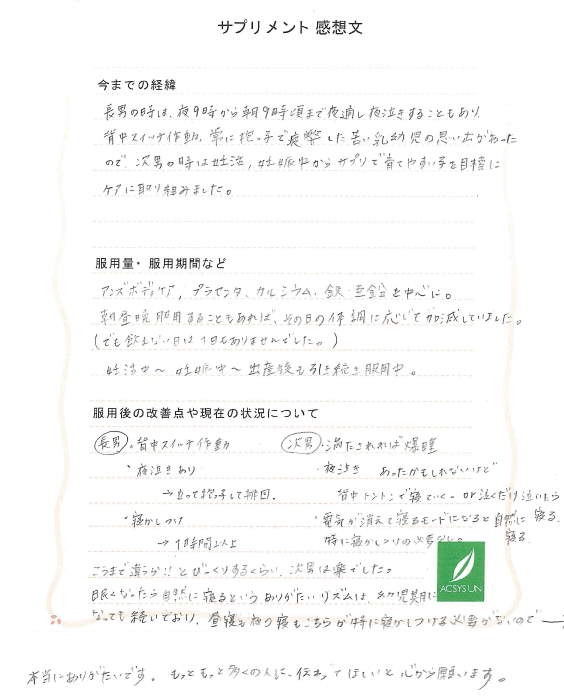 サプリメント 感想文
今までの経緯
長男の時は、夜9時から朝9時頃まで夜通し夜泣きすることもあり
背中スイッチ作動、常に抱っ子で疲弊した苦い乳幼児の思い出があった
ので、次男の時は妊活、妊娠中からサプリで育てやすい子を目標に
ケアに取り組みました。
服用量・服用期間など
アンズボディケア, プラセンタ、カルシウム・鉄・亜鉛を中心に。
朝昼晩服用することもあれば、その日の体調に応じて加減していました。
(でも飲まない日は1日もありませんでした。)
妊活中〜妊娠中〜出産後も引き続き服用中。
服用後の改善点や現在の状況について
長男 ・背中スイッチ作動 次男 ・満たされれば爆睡
・夜泣きあり ・夜泣き あったかもしれないけど
→立って抱子して徘徊。 背中トントンで寝ていくーor泣くだけ泣いたら寝る。
・寝かしつけ ・電気が消えて寝るモードになると自然に寝る。
→1時間以上 特に寝かしつけの必要なし。
ここまで違うか!!とびっくりするくらい、次男は楽でした。
眠くなったら自然に寝るというありがたいリズムは、幼児期に
なっても続いており、昼寝も夜寝もこちらが特に寝かしつける必要がないので
ACSYSUN
本当にありがたいです。もっともっと多くの人に、伝わってほしいと心から願います。